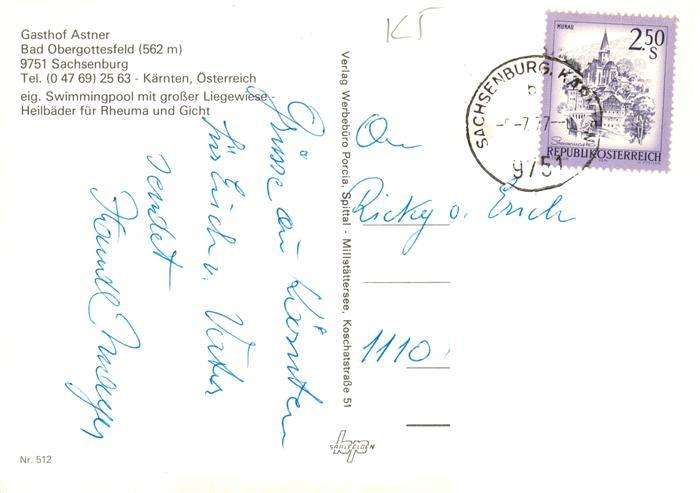 Gasthof Astner
Bad Obergottesfeld (562 m)
9751 Sachsenburg
Tel. (0 47 69) 25 63 - Kärnten, Österreich
eig. Swimmingpool mit großer Liegewiese -
Heilbäder für Rheuma und Gicht
Grüsse aus Kärnten
für Erich u. Vater
sendet
Familie
Verlag Werbebüro Porcia, Spittal - Millstättersee, Koschatstraße 51
An
Ricky u. Erich
1110
KT
MURAU
2.50
S
REPUBLIK ÖSTERREICH
SACHSENBURG, KÄRNTEN
9751
SAALFELDEN
Nr. 512